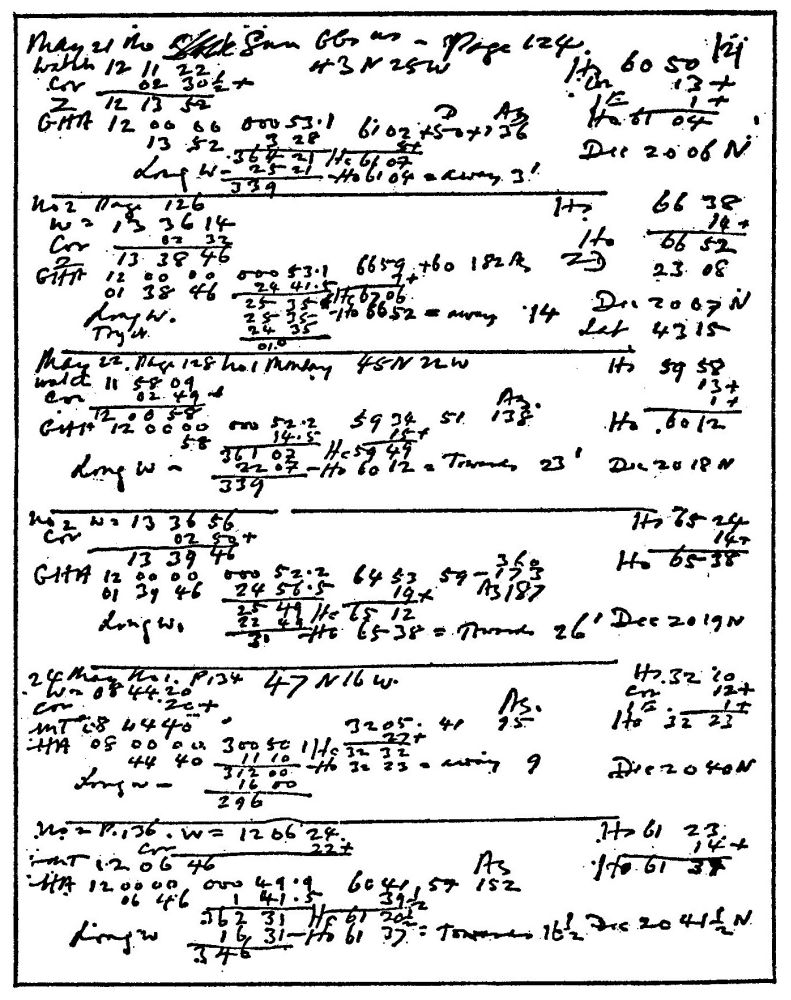 May 21 No Sun Obs no - Page 124 121
Watch 12 11 22 43 N 25 W Hs 60 50
Cor 02 30½ + Cor 13 +
Z 12 13 52 IE 1 +
GHA 12 00 00 000 53.1 D Az Ho 61 04
13 52 3 28 6102 +50+ 136
364 21 5+ Dec 20 06 N
Long W- 25 21 Hc 6107
339 -Ho 61 04 = away 3'
No 2 Page 126 Hs 66 38
W = 13 36 14 14 +
Cor 02 32 Ho 66 52
Z 13 38 46 ZD 23 08
GHA 12 00 00 000 53.1 6659 +60 182 Az
01 38 46 24 41.5 7+
25 35 Hc 6706 Dec 20 07 N
Long W. 25 35 -Ho 6652 = away 14
24 35 Lat 43 15
01.0
May 22. Page 128 No 1 Monday 45 N 22 W Hs 59 58
Watch 11 58 09 13+
Cor 02 49 + Az. 1+
12 00 58
GHA 12 00 00 000 52.2 59 34 51 138 Ho 60 12
58 14.5 15+
361 07 Hc 59 49
Long W - 22 07 -Ho 60 12 = Towards 23' Dec 20 18 N
339
No 2 W = 13 36 56 Hs 65 24
Cor 02 50 + 14+
13 39 46 360 Ho 65 38
GHA 12 00 00 000 52.2 64 53 59 - 173
01 39 46 24 56.5 19+ Az 187
25 49 Hc 65 12
Long W. 22 49 -Ho 65 38 = Towards 26' Dec 20 19 N
3
24 May No 1. P.134 47 N 16 W. Hs. 32 10
W = 08 44 20 Cor 12+
Cor 20+ Az. IE. 1+
MT 08 44 40 3205. 41 95 Ho 32 23
HA 08 00 00 300 50 27+
44 40 11 10 Hc 32 32
312 00 -Ho 32 23 = away 9 Dec 20 40 N
Long W - 16 00
296
No 2 P.136. W = 12 06 24. Hs 61 23
Cor 22+ 14+
MT 12 06 46 Az Ho 61 37
HA 12 00 00 000 49.9 60 41, 57 152
06 46 1 41.5 39½
362 31 Hc 61 20½
Long W 16 31 -Ho 61 37 = Towards 16½ Dec 20 41½ N
346